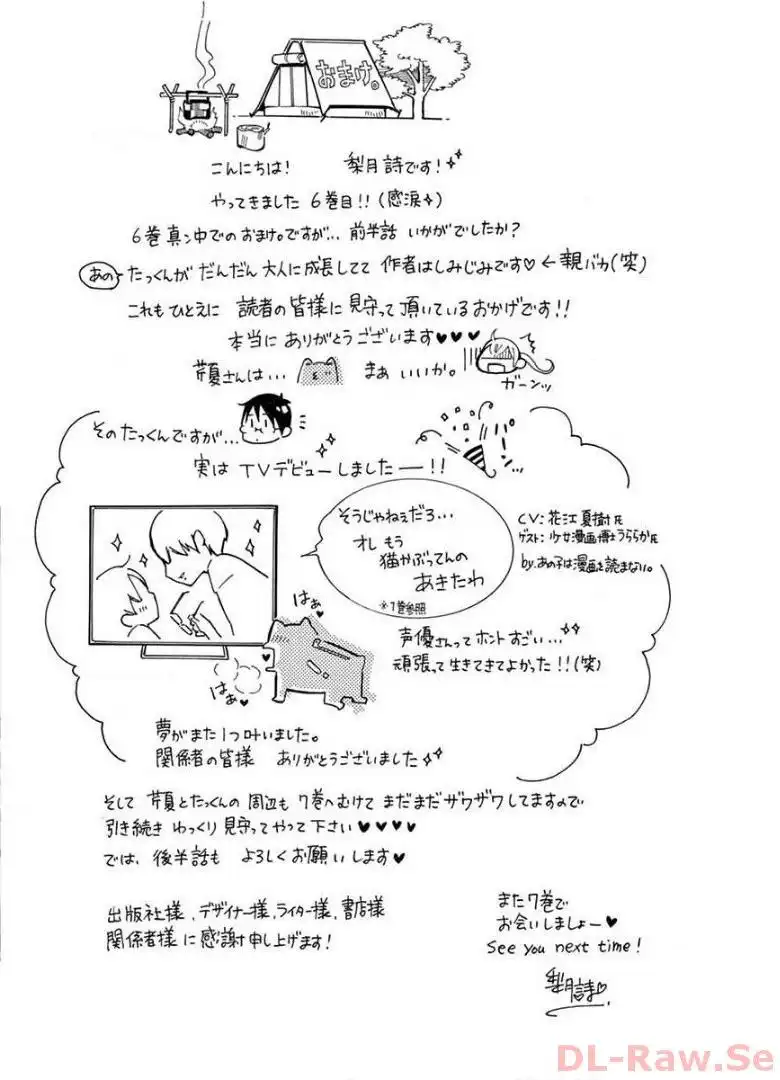 おまけ。
こんにちは! 梨月詩です!
やってきました 6巻目!!(感涙)
6巻真ン中でのおまけ。ですが… 前半話 いかがでしたか?
あのたっくんが だんだん 大人に成長してて 作者はしみじみです♡ ←親バカ(笑)
これもひとえに 読者の皆様に 見守って頂いているおかげです!!
本当に ありがとうございます♥♥♥
芹夏さんは… まぁ いいか。
ガーンッ
そのたっくんですが…
パーン
実は TVデビューしましたー!!
そうじゃねぇだろ…
オレ もう
猫かぶってんの
あきたわ
※1巻参照
CV:花江夏樹氏
ゲスト:少女漫画博士うららか氏
by.あの子は漫画を読まない。
はぁ♥
はぁ♥
声優さんってホントすごい…
頑張って生きてきてよかった!!(笑)
夢がまた1つ叶いました。
関係者の皆様 ありがとうございました
そして 芹夏とたっくんの 周辺も 7巻へむけて まだまだザワザワしてますので
引き続き ゆっくり 見守ってやって下さい♥♥♥♥
では、後半話も よろしくお願いします♥
出版社様、デザイナー様、ライター様、書店様
関係者様に感謝申し上げます!
また7巻で
お会いしましょー♥
See you next time!
梨月詩♡
DL-Raw.Se